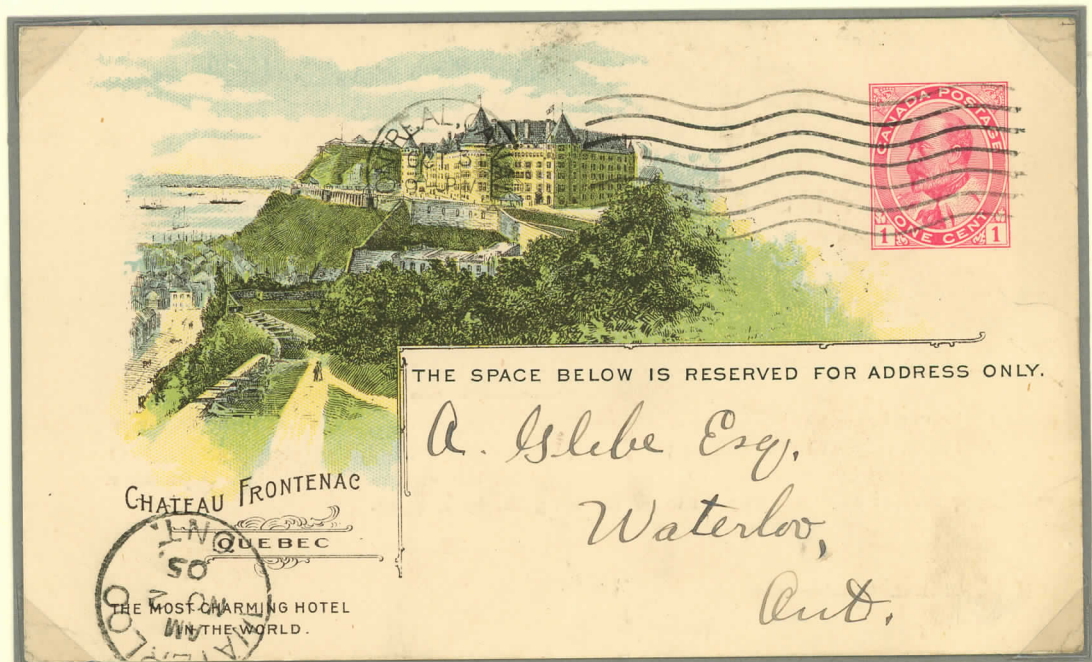 MONTREAL, CA
CANADA POSTAGE
ONE CENT
1 1
THE SPACE BELOW IS RESERVED FOR ADDRESS ONLY.
A. Glebe Esq.
Waterloo,
Ont.
CHATEAU FRONTENAC
QUEBEC
THE MOST CHARMING HOTEL
IN THE WORLD.
WATERLOO
ONT.
AM
NO
05